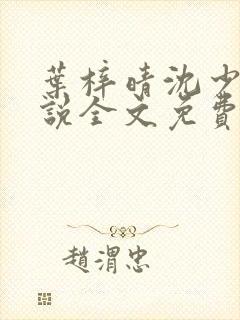 葉梓晴沈少
說全文免費
趙渭忠